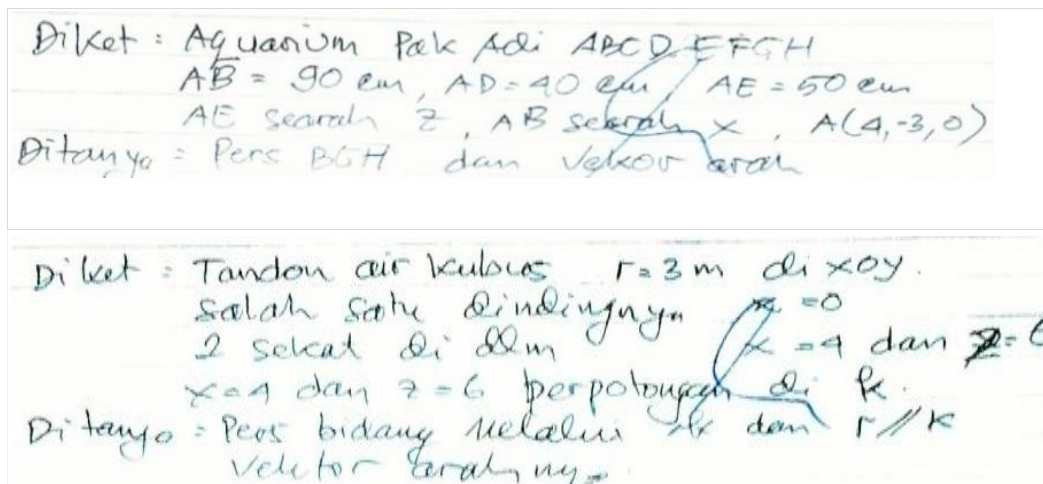 Diket : Aquarium Pak Adi ABCD EFGH
AB = 90 cm, AD = 40 cm AE = 50 cm
AE searah z, AB searah x, A(4,-3,0)
Ditanya = Pers BGH dan Vekor arah
Diket : Tandon air kubus r=3 m di xoy.
Salah satu dindingnya x=0
2 sekat di dlm x=4 dan z=6
x=4 dan z=6 perpotongan di k.
Ditanya = Pers bidang melalui dan r//k
vektor arahnya